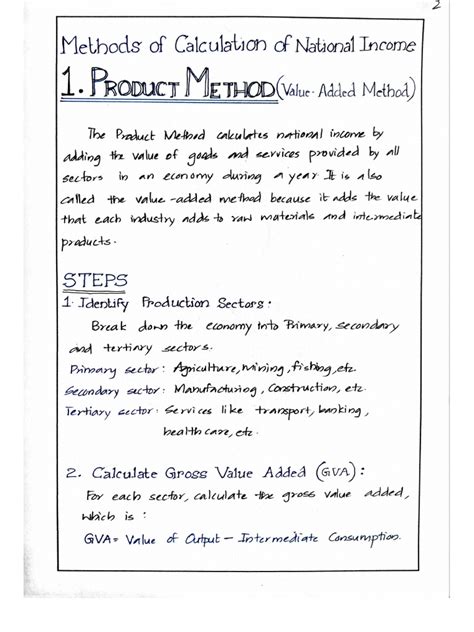 2
Methods of Calculation of National Income
1. PRODUCT METHOD (Value-Added Method)
The Product Method calculates national income by
adding the value of goods and services provided by all
sectors in an economy during a year It is also
called the value-added method because it adds the value
that each industry adds to raw materials and intermediate
products.
STEPS
1. Identify Production Sectors:
Break down the economy into Primary, secondary
and tertiary sectors.
Primary sector: Agriculture, mining, fishing, etc.
Secondary sector: Manufacturing, Construction, etc.
Tertiary sector: Services like transport, banking,
health care, etc.
2. Calculate Gross Value Added (GVA):
For each sector, calculate the gross value added,
which is :
GVA = Value of Output – Intermediate Consumption.